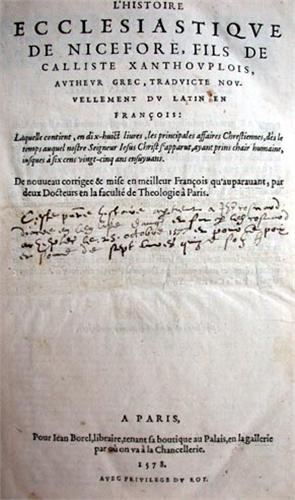 L'HISTOIRE
ECCLESIASTIQVE
DE NICEFORE, FILS DE
CALLISTE XANTHOVPLOIS,
AVTHEVR GREC, TRADVICTE NOV-
VELLEMENT DV LATIN EN
FRANÇOIS:
Laquelle contient, en dix-huict liures, les principales affaires Chrestiennes, dés
le temps auquel nostre Seigneur Iesus Christ s'apparut, ayant prins chair humaine,
iusques à six cens vingt-cinq ans ensuyuans.
De nouueau corrigee & mise en meilleur François qu'auparauant, par
deux Docteurs en la faculté de Theologie à Paris.
Ceste
octobre
sept
A PARIS,
Pour Iean Borel, libraire, tenant sa boutique au Palais, en la gallerie
par où on va à la Chancellerie.
1578.
AVEC PRIVILEGE DV ROY.